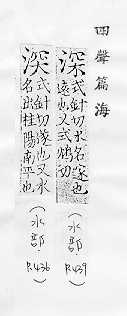 四聲篇海
深 式針切水名邃也
遠也又式鴆切
(水部 P.439)
深 式針切邃也又水
名出桂陽南平也
(水部 P.436)